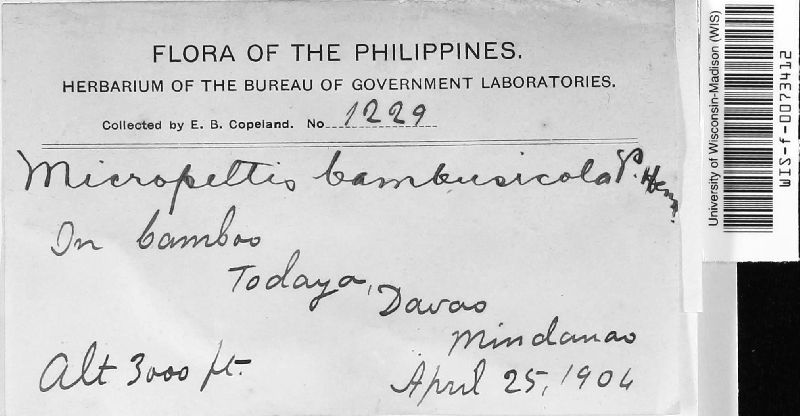 FLORA OF THE PHILIPPINES.
HERBARIUM OF THE BUREAU OF GOVERNMENT LABORATORIES.
Collected by E. B. Copeland. No. 1229
Micropeltis bambusicola P. Henn.
On bamboo
Todaya, Davao
Mindanao
Alt 3000 ft.
April 25, 1904
University of Wisconsin-Madison (WIS)
WIS-f-0073412